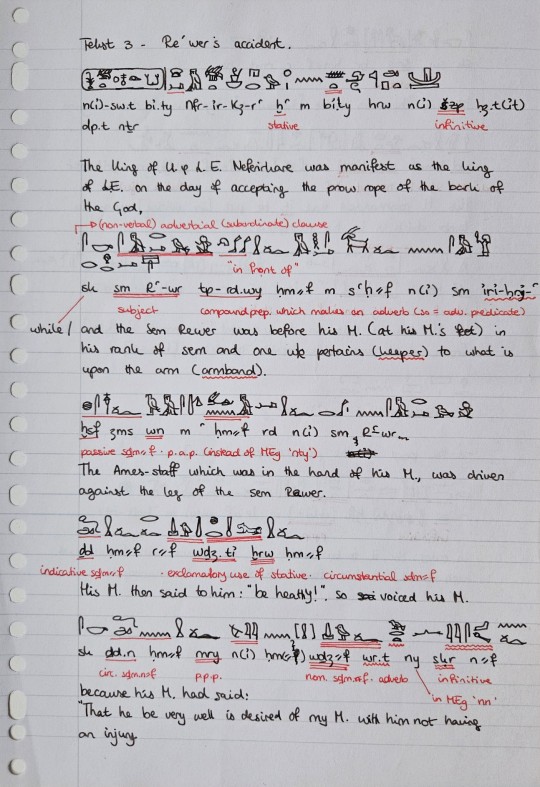 Tekst 3 - Re'wer's accident.
n(i)-sw.t bi.ty Nfr-ir-k3-rꜥ ḫꜥ m bi.ty hrw n(i) šzp ḥ3.t(it)
stative infinitive
dp.t nṯr
The King of U. & L.E. Neferirkare was manifest as the king
of L.E. on the day of accepting the prow rope of the bark of
the God,
→ (non-verbal) adverbial (subordinate) clause
"in front of"
sk sm Rꜥ-wr tp-rd.wy ḥm=f m sꜥḥ=f n(i) sm iri-ḥr.j-ꜥ
subject compound prep. which makes an adverb (so = adv. predicate)
while / and the Sem Rewer was before his M. (at his M.'s feet) in
his rank of sem and one who pertains (keeper) to what is
upon the arm (armband).
ḫsf 3ms wn m ꜥ ḥm=f rd n(i) sm Rꜥwr
passive sḏm=f · p.a.p. (instead of MEg 'nty')
The Ames-staff which was in the hand of his M., was driven
against the leg of the sem Rewer.
ḏd ḥm=f r=f wḏ3.ti ḫrw ḥm=f
indicative sḏm=f · exclamatory use of stative · circumstantial sḏm=f
His M. then said to him: "be healthy!", so voiced his M.
sk ḏd.n ḥm=f mry n(i) ḥm(=f) wḏ3=f wr.t ny sḳr n=f
circ. sḏm.n=f p.p.p. nom. sḏm=f · adverb infinitive
in MEg 'nn'
because his M. had said:
"That he be very well is desired of my M. with him not having
an injury